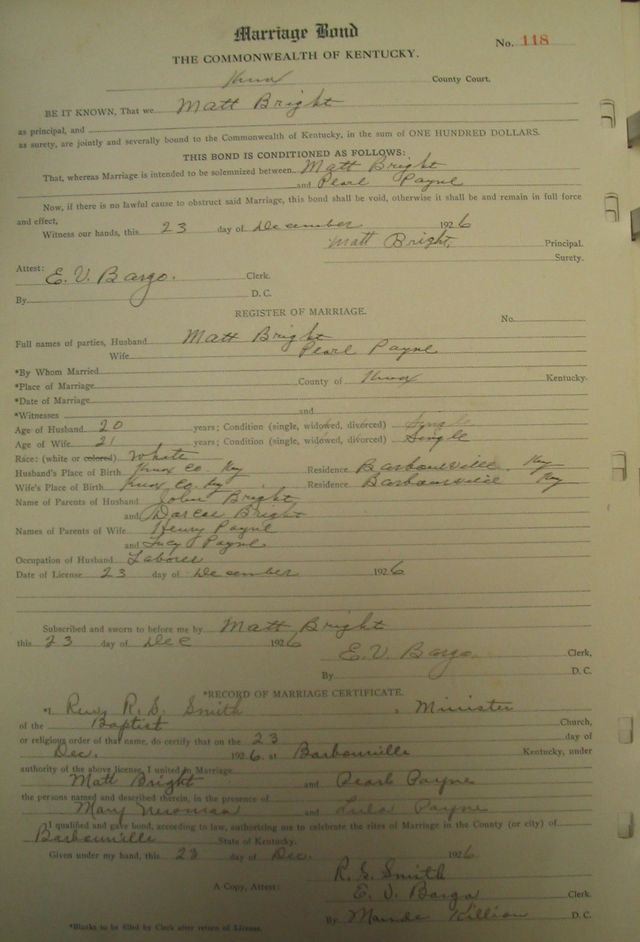 Marriage Bond
No. 118
THE COMMONWEALTH OF KENTUCKY.
Knox County Court.
BE IT KNOWN, That we Matt Bright
as principal, and
as surety, are jointly and severally bound to the Commonwealth of Kentucky, in the sum of ONE HUNDRED DOLLARS.
THIS BOND IS CONDITIONED AS FOLLOWS:
That, whereas Marriage is intended to be solemnized between Matt Bright
and Pearl Payne
Now, if there is no lawful cause to obstruct said Marriage, this bond shall be void, otherwise it shall be and remain in full force
and effect,
Witness our hands, this 23 day of December 1926
Matt Bright, Principal.
Surety.
Attest:
E. V. Bargo. Clerk.
By D. C.
REGISTER OF MARRIAGE.
No.
Full names of parties, Husband Matt Bright
Wife Pearl Payne
*By Whom Married
*Place of Marriage County of Knox Kentucky.
*Date of Marriage
*Witnesses and
Age of Husband 20 years; Condition (single, widowed, divorced) Single
Age of Wife 21 years; Condition (single, widowed, divorced) Single
Race: (white or colored) White
Husband's Place of Birth Knox Co. Ky Residence Barbourville. Ky
Wife's Place of Birth Knox Co. Ky. Residence Barbourville Ky
Name of Parents of Husband John Bright
and Bright
Names of Parents of Wife Henry Payne
and Lucy Payne
Occupation of Husband Laborer
Date of License 23 day of December 1926
Subscribed and sworn to before me by Matt Bright
this 23 day of Dec 1926
E. V. Bargo. Clerk,
By D. C.
*RECORD OF MARRIAGE CERTIFICATE.
*I Rev R. S. Smith, Minister
of the Baptist Church,
or religious order of that name, do certify that on the 23 day of
Dec. 1926, at Barbourville Kentucky, under
authority of the above license, I united in Marriage
Matt Bright and Pearl Payne
the persons named and described therein, in the presence of
Mary Newman and Lula Payne
I qualified and gave bond, according to law, authorizing me to celebrate the rites of Marriage in the County (or city) of
Barbourville State of Kentucky.
Given under my hand, this 23 day of Dec. 1926
R. S. Smith
A Copy, Attest: E. V. Bargo Clerk.
By Maude Killion D. C.
*Blanks to be filled by Clerk after return of License.